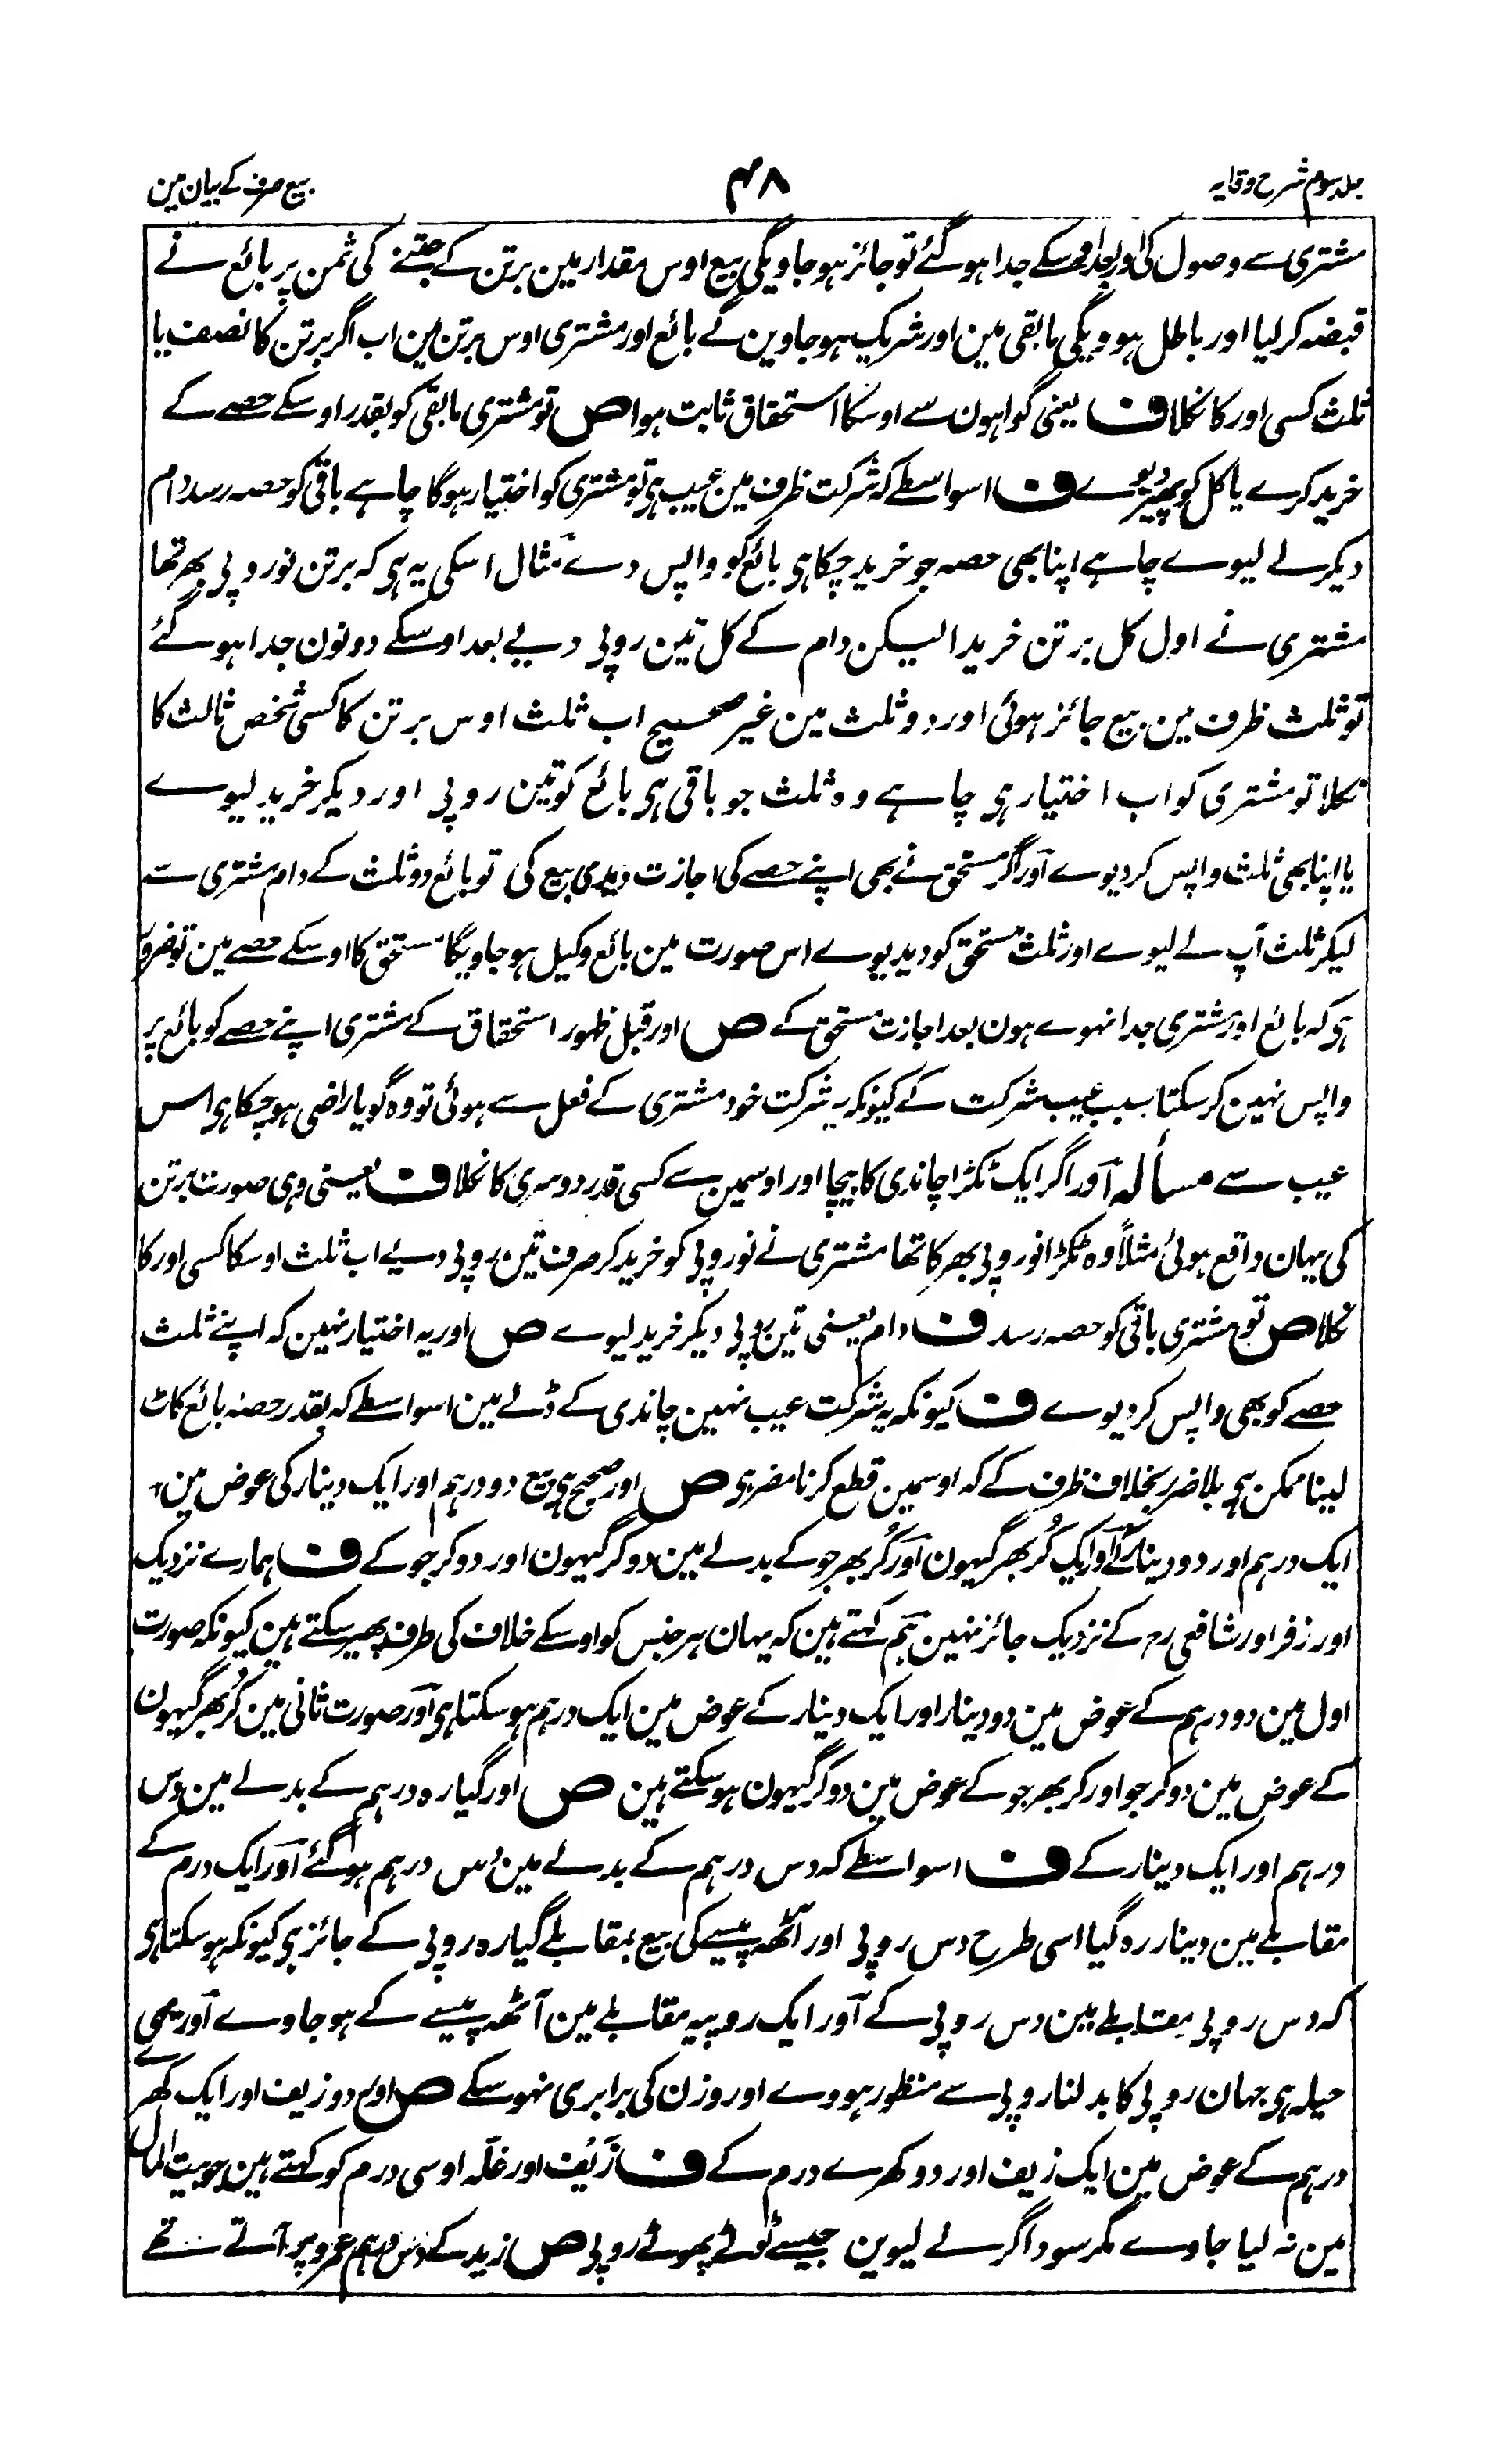 جلد سوم شرح وقایہ
۴۸
بیع صرف کے بیان مین
مشتری سے وصول کی اور بعد اسکے جدا ہو گئے تو جائز ہو جاویگی بیع اوس مقدار مین برتن کے جتنے کی ثمن پر بائع نے
قبضہ کر لیا اور باطل ہوویگی مابقی مین اور شریک ہو جاوین گے بائع اور مشتری اوس برتن مین اب اگر برتن کا نصف یا
ثلث کسی اور کا نکلا ف یعنی گواہون سے اوسکا استحقاق ثابت ہوا ص تو مشتری مابقی کو بقدر اوسکے حصے کے
خرید کرے یا کل کو پھیر دیوے ف اسواسطے کہ شرکت ظرف مین عیب ہی تو مشتری کو اختیار ہوگا چاہے باقی کو حصہ رسد دام
دیکر لے لیوے چاہے اپنا بھی حصہ جو خرید چکا ہی بائع کو واپس دے مثال اسکی یہ ہی کہ برتن نو روپی بھر تھا
مشتری نے اول کل برتن خریدا لیکن دام کے کل تین روپی دیے بعد اوسکے دونون جدا ہو گئے
تو ثلث ظرف مین بیع جائز ہوئی اور دو ثلث مین غیر صحیح اب ثلث اوس برتن کا کسی شخص ثالث کا
نکلا تو مشتری کو اب اختیار ہی چاہے وہ ثلث جو باقی ہی بائع کو تین روپی اور دیکر خرید لیوے
یا اپنا بھی ثلث واپس کر دیوے اور اگر مستحق نے بھی اپنے حصے کی اجازت دیدی بیع کی تو بائع دو ثلث کے دام مشتری سے
لیکر ثلث آپ لے لیوے اور ثلث مستحق کو دیدیوے اس صورت مین بائع وکیل ہو جاویگا مستحق کا اوسکے حصے مین تو ضرور
ہی کہ بائع اور مشتری جدا نہوے ہون بعد اجازت مستحق کے ص اور قبل ظہور استحقاق کے مشتری اپنے حصے کو بائع پر
واپس نہین کر سکتا بسبب عیب شرکت کے کیونکہ یہ شرکت خود مشتری کے فعل سے ہوئی تو وہ گویا راضی ہو چکا ہی اس
عیب سے مسألہ اور اگر ایک ٹکڑا چاندی کا بیچا اور اوسمین سے کسی قدر دوسری کا نکلا ف یعنی وہی صورت برتن
کی یہان واقع ہوئی مثلاً وہ ٹکڑا نو روپی بھر کا تھا مشتری نے نو روپی کو خرید کر صرف تین روپی دیے اب ثلث اوسکا کسی اور کا
نکلا ص تو مشتری باقی کو حصہ رسد ف دام یعنی تین روپی دیکر خرید لیوے ص اور یہ اختیار نہین کہ اپنے ثلث
حصے کو بھی واپس کر دیوے ف کیونکہ یہ شرکت عیب نہین چاندی کے ڈلے مین اسواسطے کہ بقدر حصہ بائع کاٹ
لینا ممکن ہی بلا ضرر بخلاف ظرف کے کہ اوسمین قطع کرنا مضر ہی ص اور صحیح ہی بیع دو درہم اور ایک دینار کی عوض مین
ایک درہم اور دو دینار کے اور ایک کُر بھر گیہون اور کُر بھر جو کے بدلے مین دو کر گیہون اور دو کر جو کے ف ہمارے نزدیک
اور زفر اور شافعی رہ کے نزدیک جائز نہین ہم کہتے ہین کہ یہان ہر جنس کو اوسکے خلاف کی طرف پھیر سکتے ہین کیونکہ صورت
اول مین دو درہم کے عوض مین دو دینار اور ایک دینار کے عوض مین ایک درہم ہو سکتا ہی اور صورت ثانی مین کُر بھر گیہون
کے عوض مین دو کر جو اور کر بھر جو کے عوض مین دو کر گیہون ہو سکتے ہین ص اور گیارہ درہم کے بدلے مین دس
درہم اور ایک دینار کے ف اسواسطے کہ دس درہم کے بدلے مین دس درہم ہو گئے اور ایک درم کے
مقابلے مین دینار رہ گیا اسی طرح دس روپی اور آٹھ پیسے کی بیع بمقابلے گیارہ روپی کے جائز ہی کیونکہ ہو سکتا ہی
کہ دس روپی مقابلے مین دس روپی کے اور ایک روپیہ مقابلے مین آٹھ پیسے کے ہو جاوے اور یہی
حیلہ ہی جہان روپی کا بدلنا روپی سے منظور ہووے اور وزن کی برابری نہو سکے ص اور دو زیف اور ایک کھرے
درہم کے عوض مین ایک زیف اور دو کھرے درم کے ف زَیُف اور غلّہ اوسی درم کو کہتے ہین جو بیت المال
مین نہ لیا جاوے مگر سوداگر لے لیوین جیسے ٹوٹے پھوٹے روپی ص زید کے دس درہم عمرو پر آتے تھے